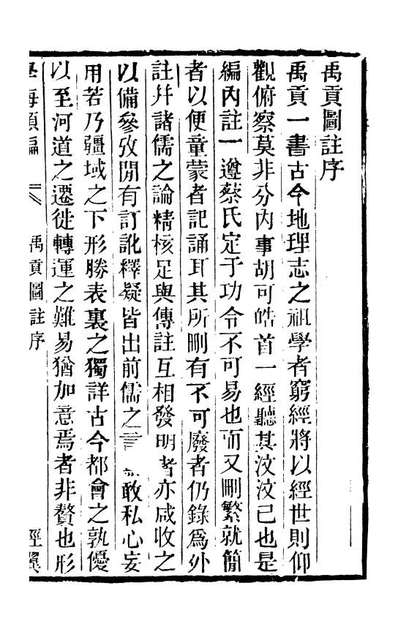 禹貢圖註序
禹貢一書古今地理志之祖學者窮經將以經世則仰
觀俯察莫非分内事胡可皓首一經聽其汶汶已也是
編内註一遵蔡氏定于功令不可易也而又刪繁就簡
者以便童蒙者記誦耳其所刪有不可廢者仍錄爲外
註幷諸儒之論精核足與傳註互相發明者亦咸收之
以備參攷閒有訂訛釋疑皆出前儒之言 敢私心妄
用若乃疆域之下形勝表裏之獨詳古今都會之孰優
以至河道之遷徙轉運之難易猶加意焉者非贅也形
學海類編
禹貢圖註序
經翼